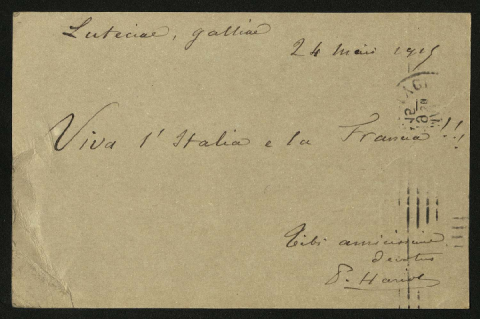 Luteciae, galliae
24 maii 1915
Viva l'Italia e la Francia!!
Tibi amicissime
devotus
P. Hariot